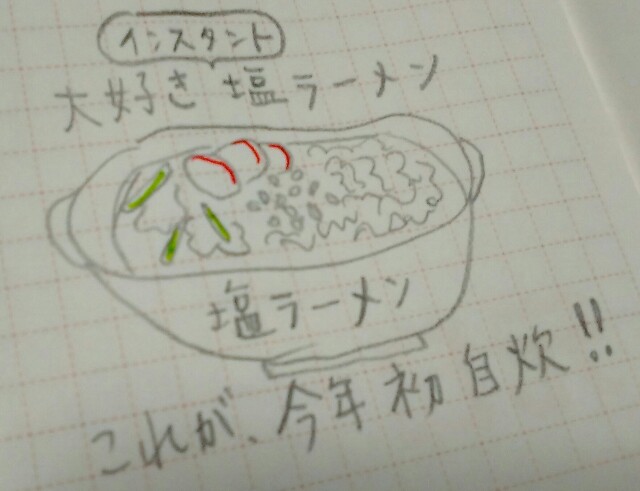 インスタント
大好き 塩ラーメン
塩ラーメン
これが、今年初自炊!!